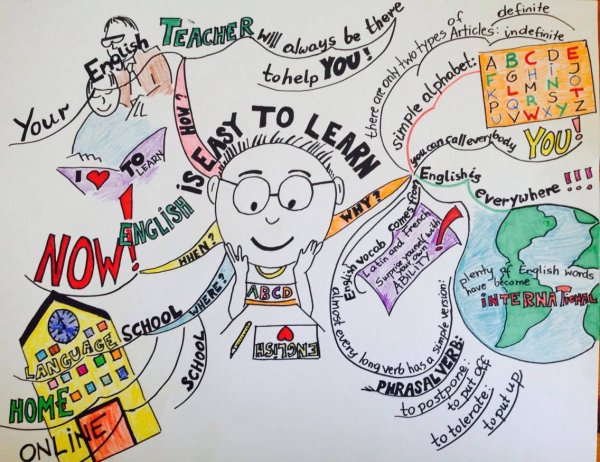 ENGLISH IS EASY TO LEARN
HOW?
Your English TEACHER will always be there
to help YOU!
I TO LEARN
WHEN?
NOW!
WHERE?
SCHOOL
LANGUAGE
SCHOOL
HOME
ONLINE
WHY?
there are only two types of
Articles:
definite
indefinite
simple alphabet:
A B C D E
F G H I J
K L M N O
P Q R S T
U V W X Y Z
you can call everybody
YOU!
English is
everywhere!!!
plenty of English words
have become
INTERNATIONAL
English vocab comes from
Latin and French
Surprise yourself with
your own
ABILITY!
almost every long verb has a simple version:
PHRASAL VERB:
to postpone:
to put off
to tolerate:
to put up
ABCD
ENGLISH